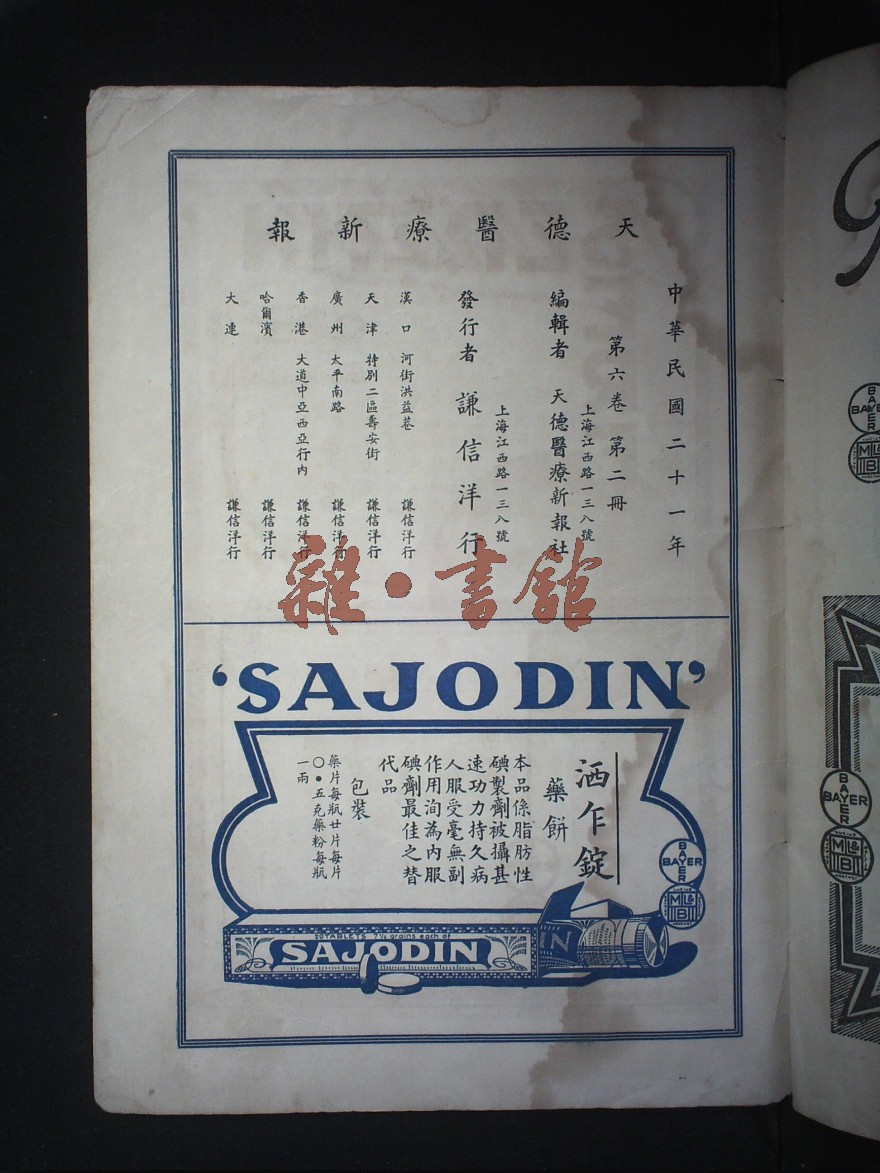 天德醫療新報
中華民國二十一年
第六卷 第二冊
上海江西路一三八號
編輯者 天德醫療新報社
上海江西路一三八號
發行者 謙信洋行
漢口 河街洪益巷 謙信洋行
天津 特別二區壽安街 謙信洋行
廣州 太平南路 謙信洋行
香港 大道中亞西亞行內 謙信洋行
哈爾濱 謙信洋行
大連 謙信洋行
雜·書館
‘SAJODIN’
洒乍錠
藥餅
本品係脂肪性
碘製劑被攝甚
速功力持久病
人服受毫無副
作用洵為內服
碘劑最佳之替
代品
包裝
藥片每瓶廿片每片
〇●五克藥粉每瓶
一兩
BAYER
BAYER
ML&B
20 TABLETS 7½ grains each of
SAJODIN
IN
BAYER
BAYER
ML&B
BAYER
BAYER
ML&B